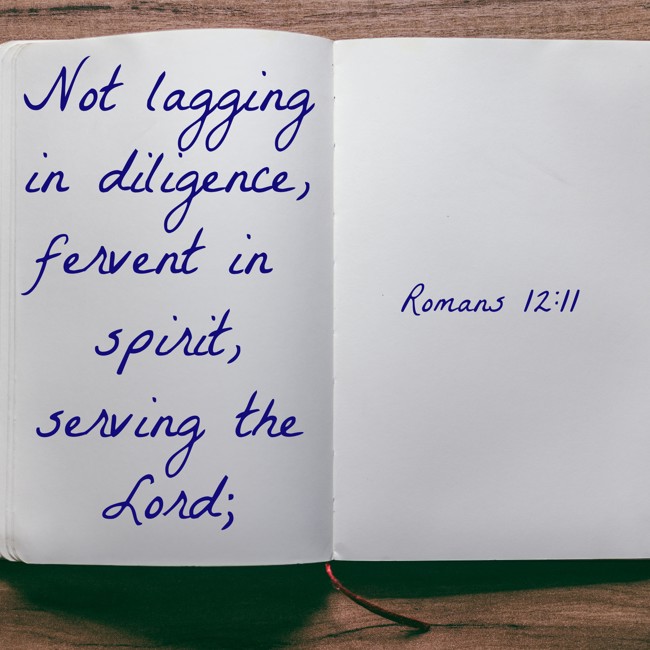 Not lagging
in diligence,
fervent in
spirit,
serving the
Lord;
Romans 12:11